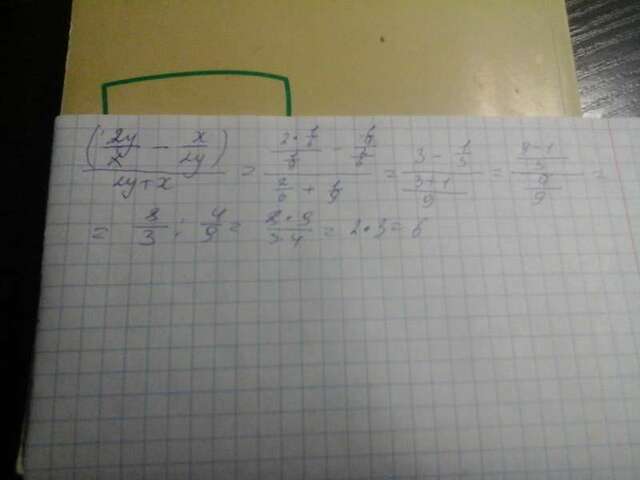 (2y/x - x/2y)/(2y+x) = (2·1/6 / 1/9 - 1/9 / 2/6)/(2/6 + 1/9) = (3 - 1/3)/((3+1)/9) = ((9-1)/3)/(4/9) =
= 8/3 : 4/9 = 8·9/3·4 = 2·3=6